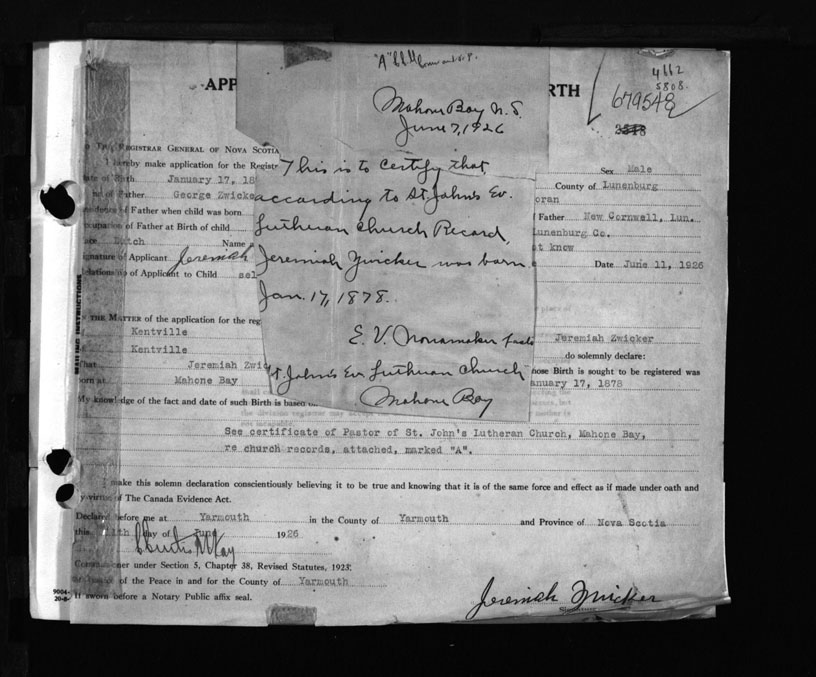 "A"
4662
5808.
679548
APP
RTH
Mahone Bay N.S.
June 7, 1926
REGISTRAR GENERAL OF NOVA SCOTIA
I hereby make application for the Registr
This is to certify that
Sex Male
of Birth January 17, 18
County of Lunenburg
of Father George Zwicke
according to St. John's Ev.
oran
of Father when child was born
Father New Cornwell, Lun.
Occupation of Father at Birth of child
Lutheran Church Record,
Lunenburg Co.
Dutch Name
t know
Signature of Applicant Jeremiah
Jeremiah Zwicker was born
Date June 11, 1926
Relationship of Applicant to Child sel
Jan. 17, 1878.
MAILING INSTRUCTIONS
IN THE MATTER of the application for the reg
Kentville
E. V. Nonamaker
Jeremiah Zwicker
Kentville
do solemnly declare:
That Jeremiah Zwic
St John's Ev Lutheran Church
hose Birth is sought to be registered was
born at Mahone Bay
anuary 17, 1878
My knowledge of the fact and date of such Birth is based
Mahone Bay
See certificate of Pastor of St. John's Lutheran Church, Mahone Bay,
re church records, attached, marked "A".
I make this solemn declaration conscientiously believing it to be true and knowing that it is of the same force and effect as if made under oath and
by virtue of The Canada Evidence Act.
Declared before me at Yarmouth in the County of Yarmouth and Province of Nova Scotia
this day of June 1926
Commissioner under Section 5, Chapter 38, Revised Statutes, 1923.
of the Peace in and for the County of Yarmouth
Jeremiah Zwicker
If sworn before a Notary Public affix seal.